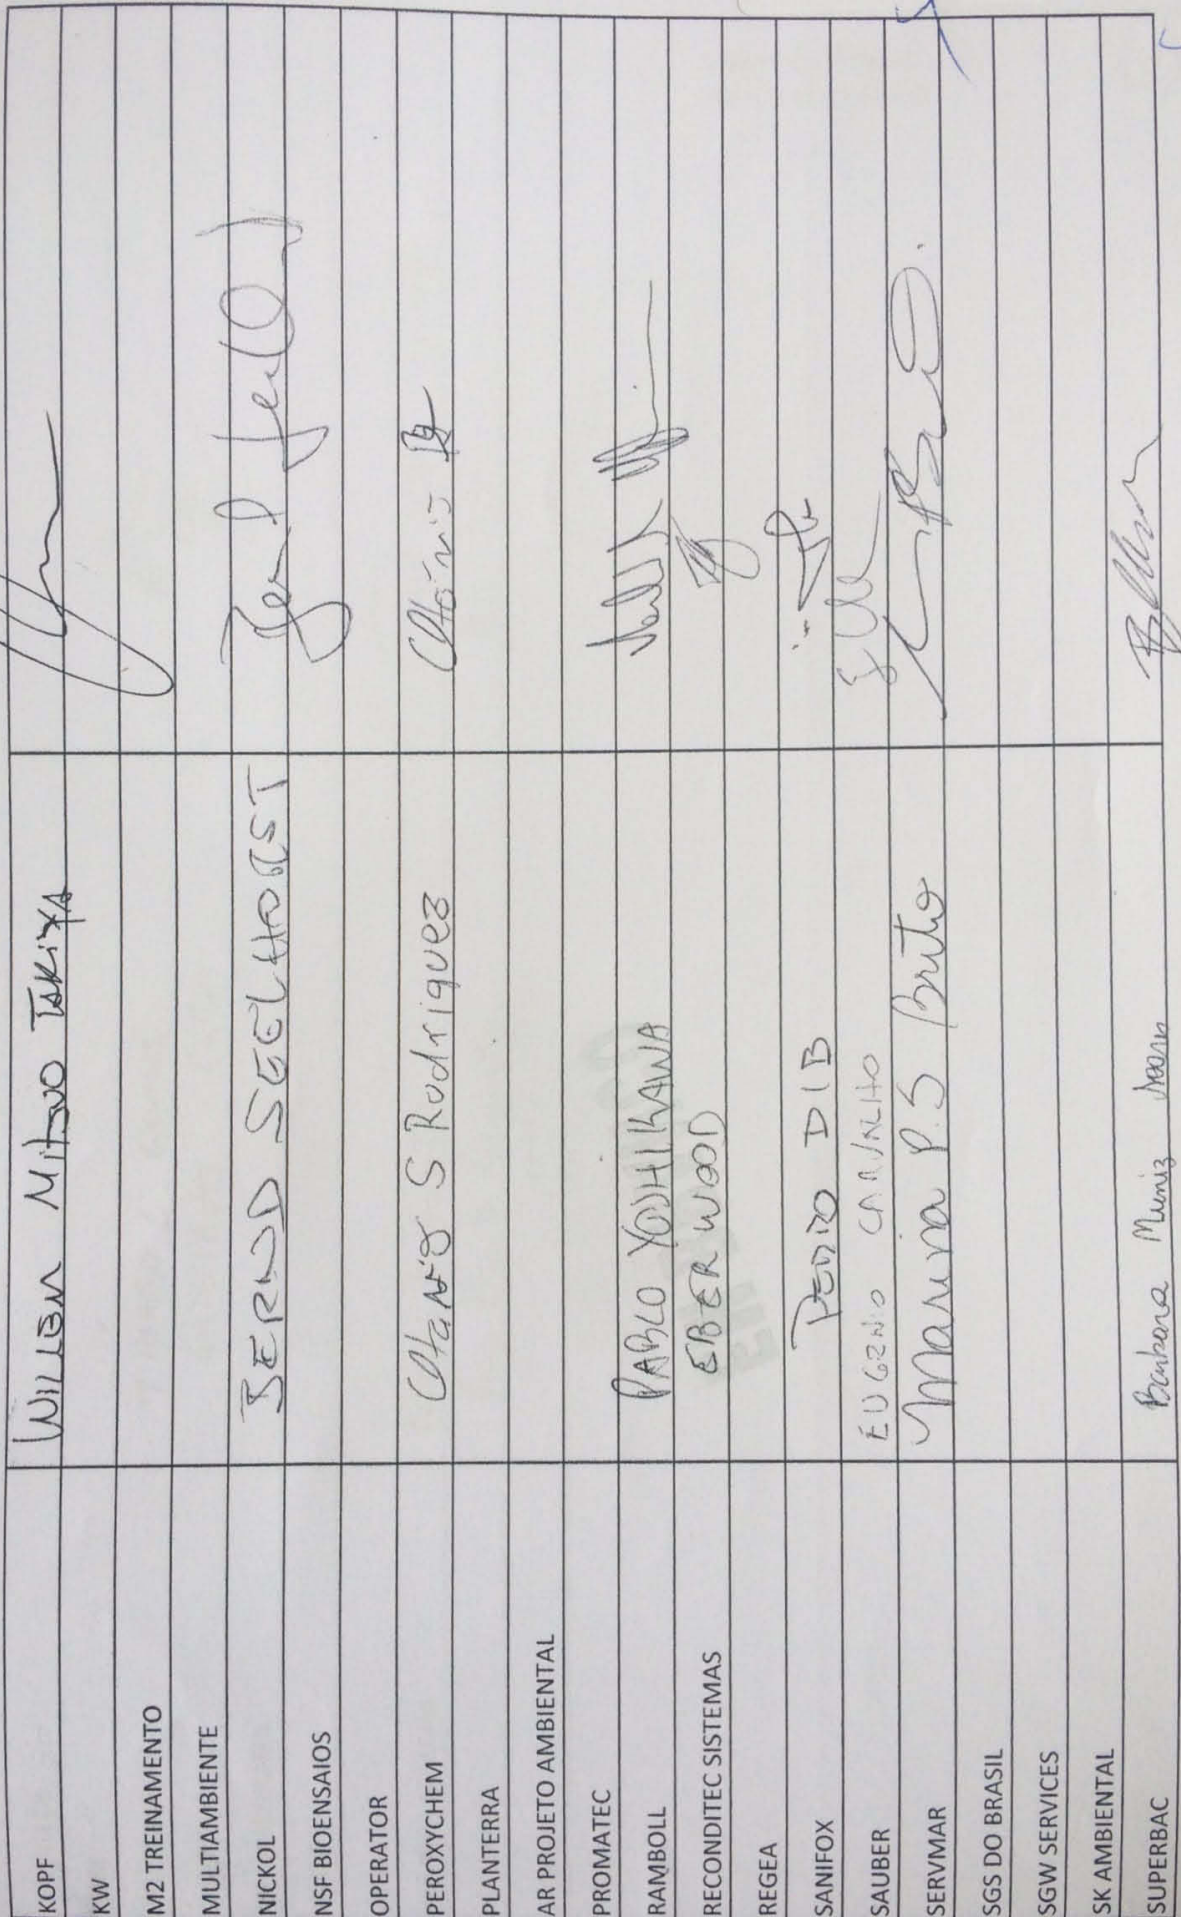 KOPF WILLEM MITSUO TAKIYA
KW
M2 TREINAMENTO
MULTIAMBIENTE
NICKOL BERND SEELHORST
NSF BIOENSAIOS
OPERATOR
PEROXYCHEM S Rodriguez
PLANTERRA
AR PROJETO AMBIENTAL
PROMATEC
RAMBOLL PABLO YOSHIKAWA
RECONDITEC SISTEMAS EBER WOOD
REGEA
SANIFOX PEDRO DIB
SAUBER EUGENIO CARVALHO
SERVMAR Marina P.S Brito
SGS DO BRASIL
SGW SERVICES
SK AMBIENTAL
SUPERBAC Barbara Muniz